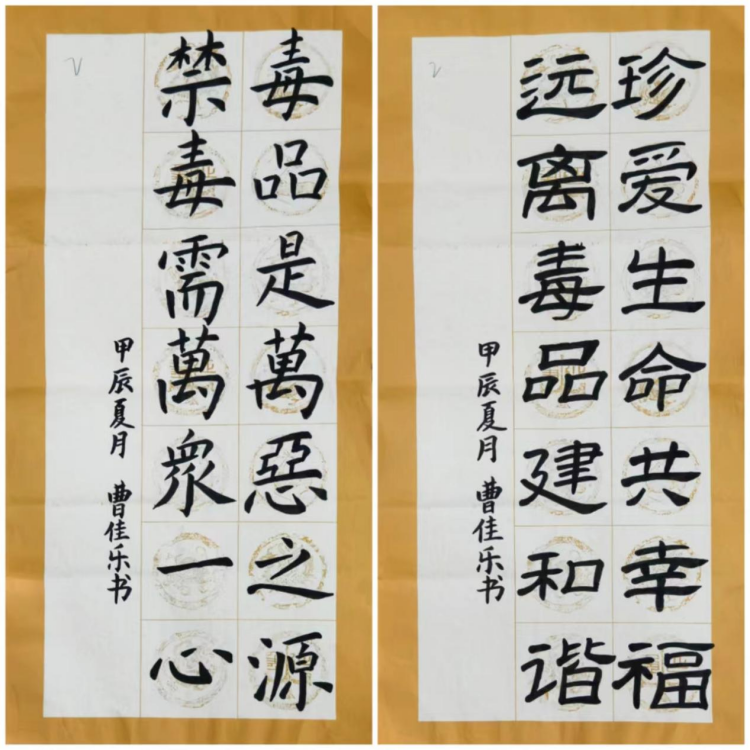 毒品是萬惡之源
禁毒需萬衆一心
甲辰夏月 曹佳乐书
珍爱生命共幸福
远离毒品建和谐
甲辰夏月 曹佳乐书